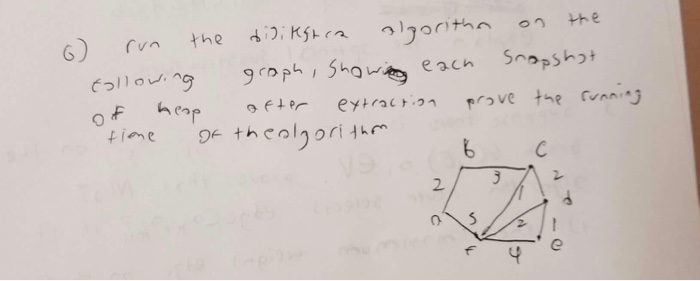 6) run the dijikstra algorithm on the
following graph, showing each snapshot
of heap after extraction prove the running
time of the algorithm
b c
3
2 1 2
a d
5 2 1
f 4 e